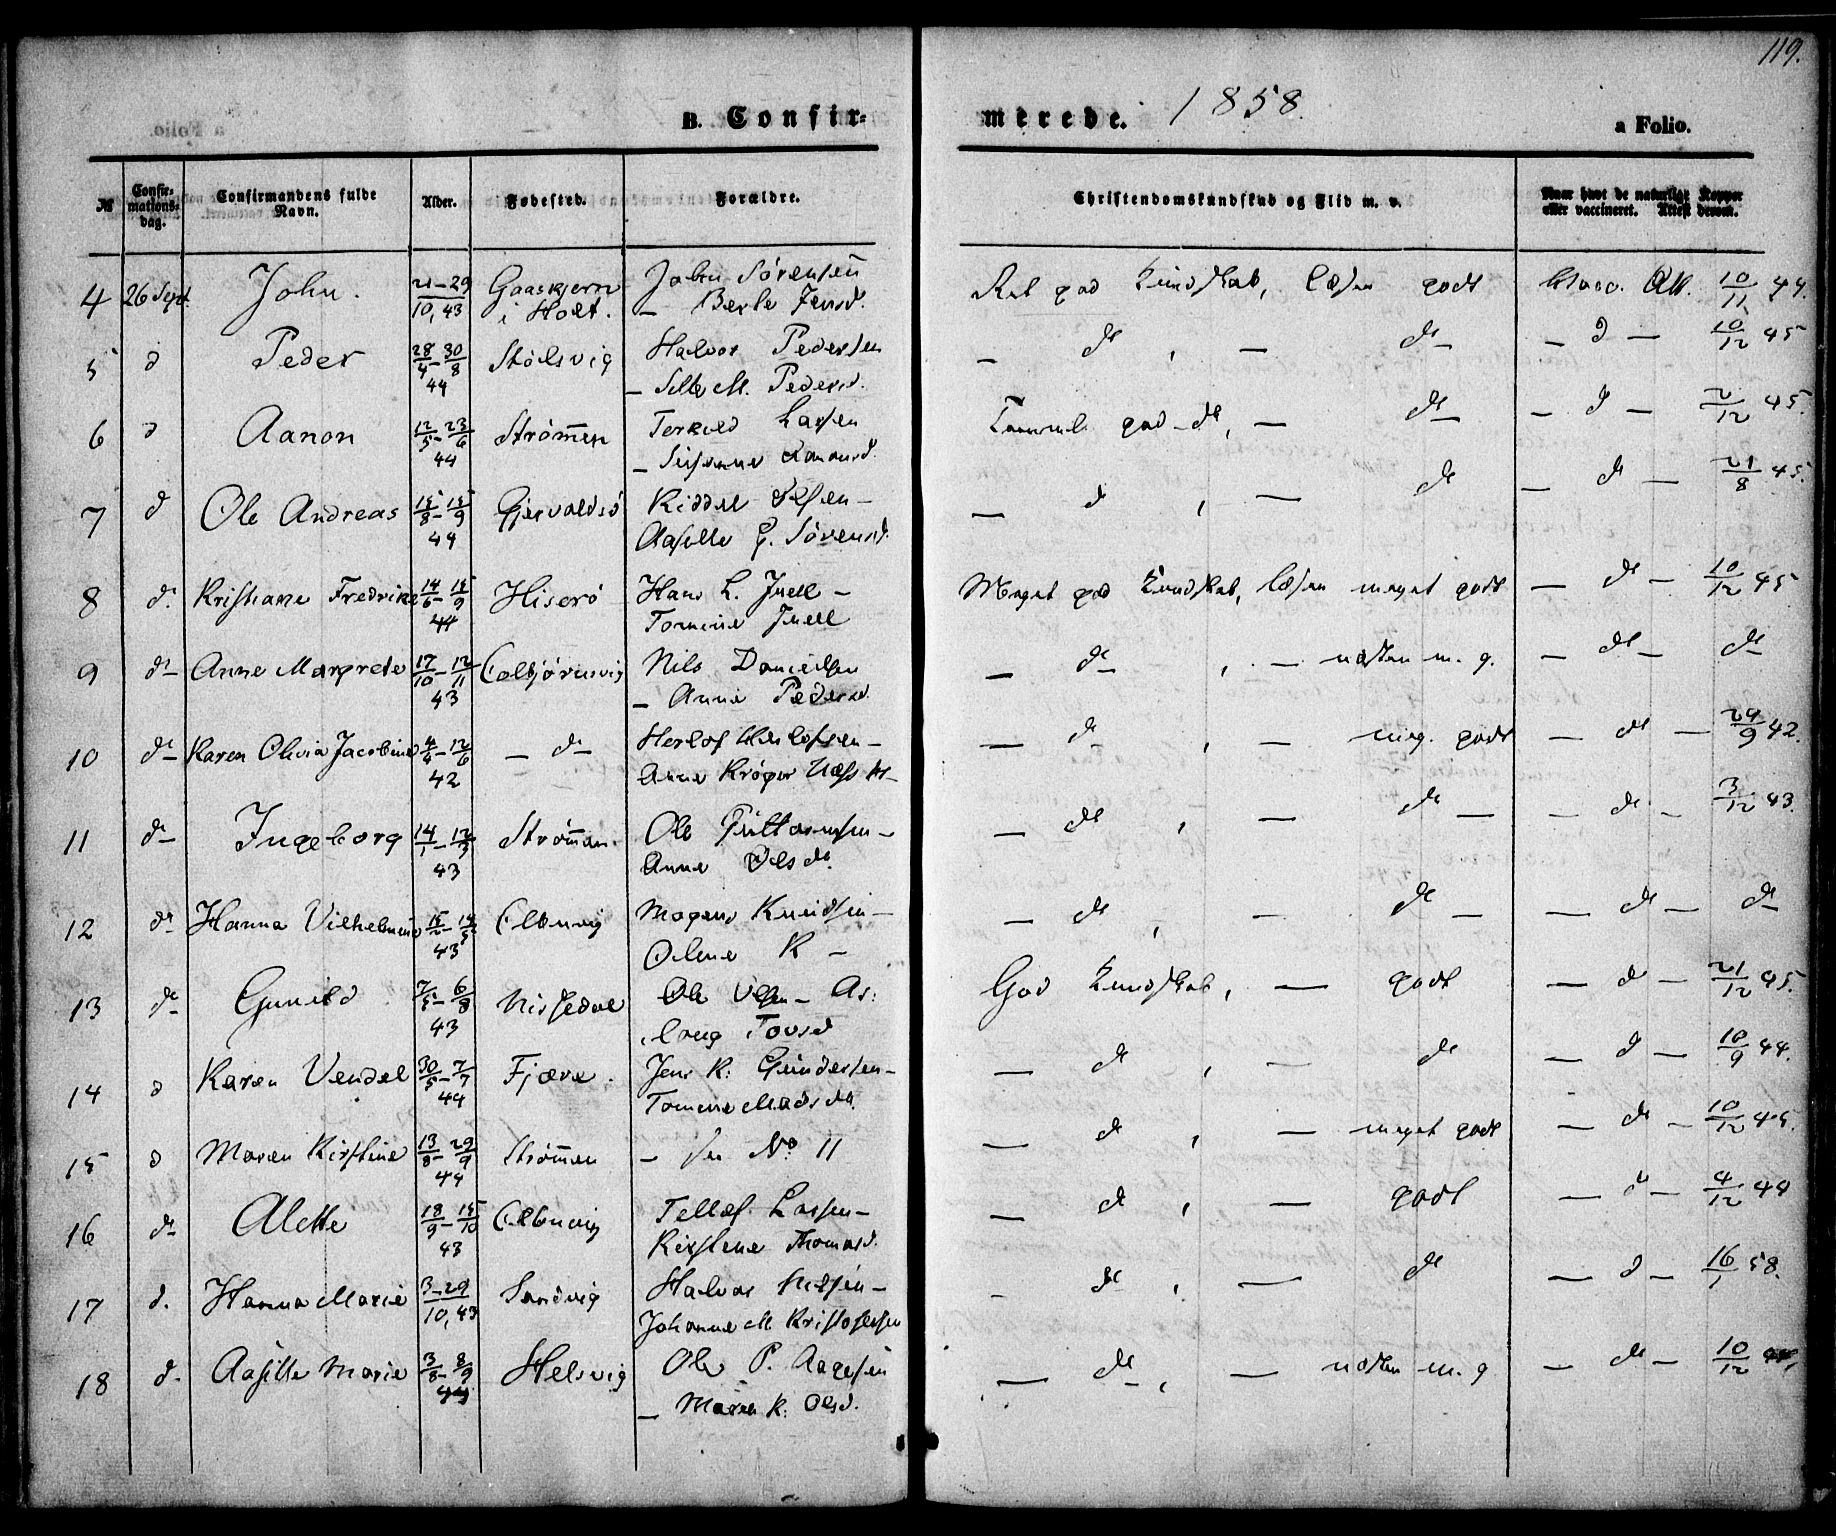 119.
B. Confir-
merede. 1858.
a Folio.
№ Confir-mations-dag. Confirmandens fulde Navn. Alder. Fødested. Forældre. Christendomskundskab og Flid m. v. Naar havt de naturlige Kopper eller vaccineret. Attest derom.
4 26 Sept. John. 21-29/10, 43 Gaaskjern i Holt. John Sørensen - Berte Jensd. Ret god Kundskab, læser godt Vacc. Att. 10/11 44.
5 d Peder 28/4-30/8 44 Stølsvig Halvor Pedersen - Sille M. Pedersd. - de, - de - - d - 10/12 45
6 d Aanon 12/5-23/6 44 Strømmen Terkild Larsen - Aanonsd. god de, - de - - d - 2/12 45.
7 d Ole Andreas 15/8-15/9 44 Gjervoldsø Olsen - Aasille G. Sørensd. - d, - de - d - 21/8 45.
8 d. Kristiane Fredrike 14/6-15/9 44 Hiserø Hans L. Juell - Tomine Juell Meget god Kundskab, læser meget godt - de - 10/12 45
9 d- Anne Margrete 17/10-12/11 43 Colbjørnsvig Nils Danielsen - Anne Pedersd. - de, - næsten m. g. - de - de
10 d- Karen Olivia Jacobine 4/4-12/6 42 - d - Herlof Herlofsen - Anne Krøger Næss - d, - meg. godt - de - 29/9 42.
11 d- Ingeborg 14/1-12/3 43 Strømmen. Ole Guttormsen - Anne Olsdr. - de, - de - - de - 3/12 43.
12 d- Hanna Vilhelmine 43 Mogens Knudsen - Olene K - - de, - de - - de - de
13 d- Gunild 7/5-6/8 43 Nissedal Ole Olsen - Tovsd God Kundskab, - godt - d - 21/12 45.
14 d Karen Vendel 30/5-7/7 44 Fjære. Jens K. Gundersen - Tomine Madsdr. - d, - de - d - 10/9 44.
15 d Maren Kirstine 13/8-29/9 44 Strømmen - se No 11 - d, - meget godt - de - 10/12 45.
16 d- Alette 18/9-15/10 43 Tellef Larsen - Kirstene Thomasd. - d, - godt - d - 4/12 44
17 d. Hanna Marie 3-29/10, 43 Sandvig Halvor Nilsen - Johanne M Kristofersen - de, - de - d - 16/1 58.
18 d. Aasille Marie 3/8-8/9 44 Helsvig Ole P. Aagesen - Maren K. Olsd. - de, - næsten m. g - de - 10/12 44,